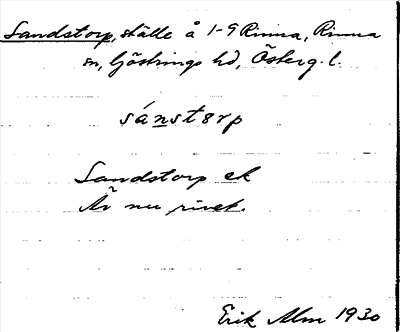 Sandstorp, ställe å 1-9 Rinna, Rinna
sn, Göstrings hd, Österg. l.
sánstørp
Sandstorp ek
Är nu rivet.
Erik Alm 1930